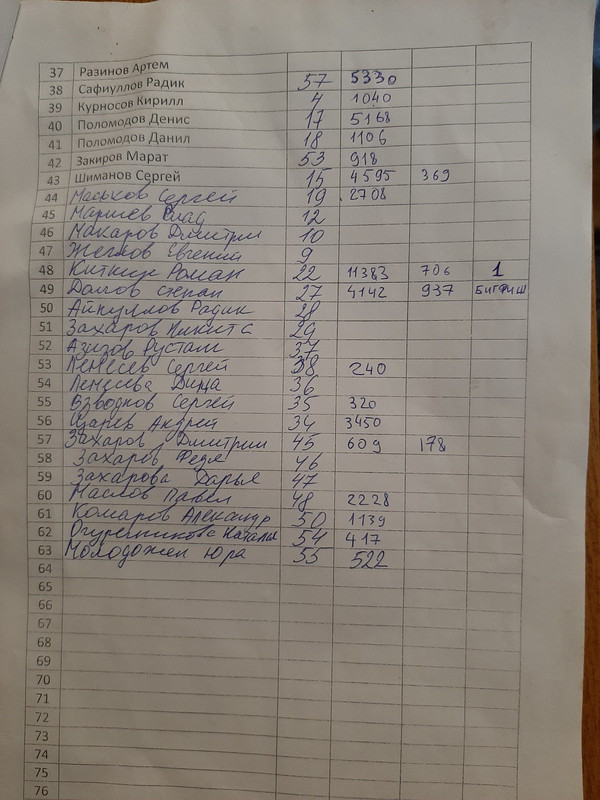 37 Разинов Артем
38 Сафиуллов Радик 57 5330
39 Курносов Кирилл 4 1040
40 Поломодов Денис 17 5168
41 Поломодов Данил 18 1106
42 Закиров Марат 53 918
43 Шиманов Сергей 15 4595 369
44 Маськов Сергей 19 2708
45 Маршев Влад 12
46 Макаров Дмитрий 10
47 Жеглов Евгений 9
48 Роман 22 11383 706 1
49 Долгов Степан 27 4142 937 БИГФИШ
50 Айкуллов Радик 28
51 Захаров Никита 29
52 Азизов Рустам 37
53 Ленесев Сергей 38 240
54 Ленесева Дина 36
55 Взводнов Сергей 35 320
56 Царев Андрей 34 3450
57 Захаров Дмитрий 45 609 178
58 Захаров Федя 46
59 Захарова Дарья 47
60 Маслов Павел 48 2228
61 Комаров Александр 50 1139
62 Огуречникова Наталья 54 417
63 Молодожен Юра 55 522
64
65
66
67
68
69
70
71
72
73
74
75
76